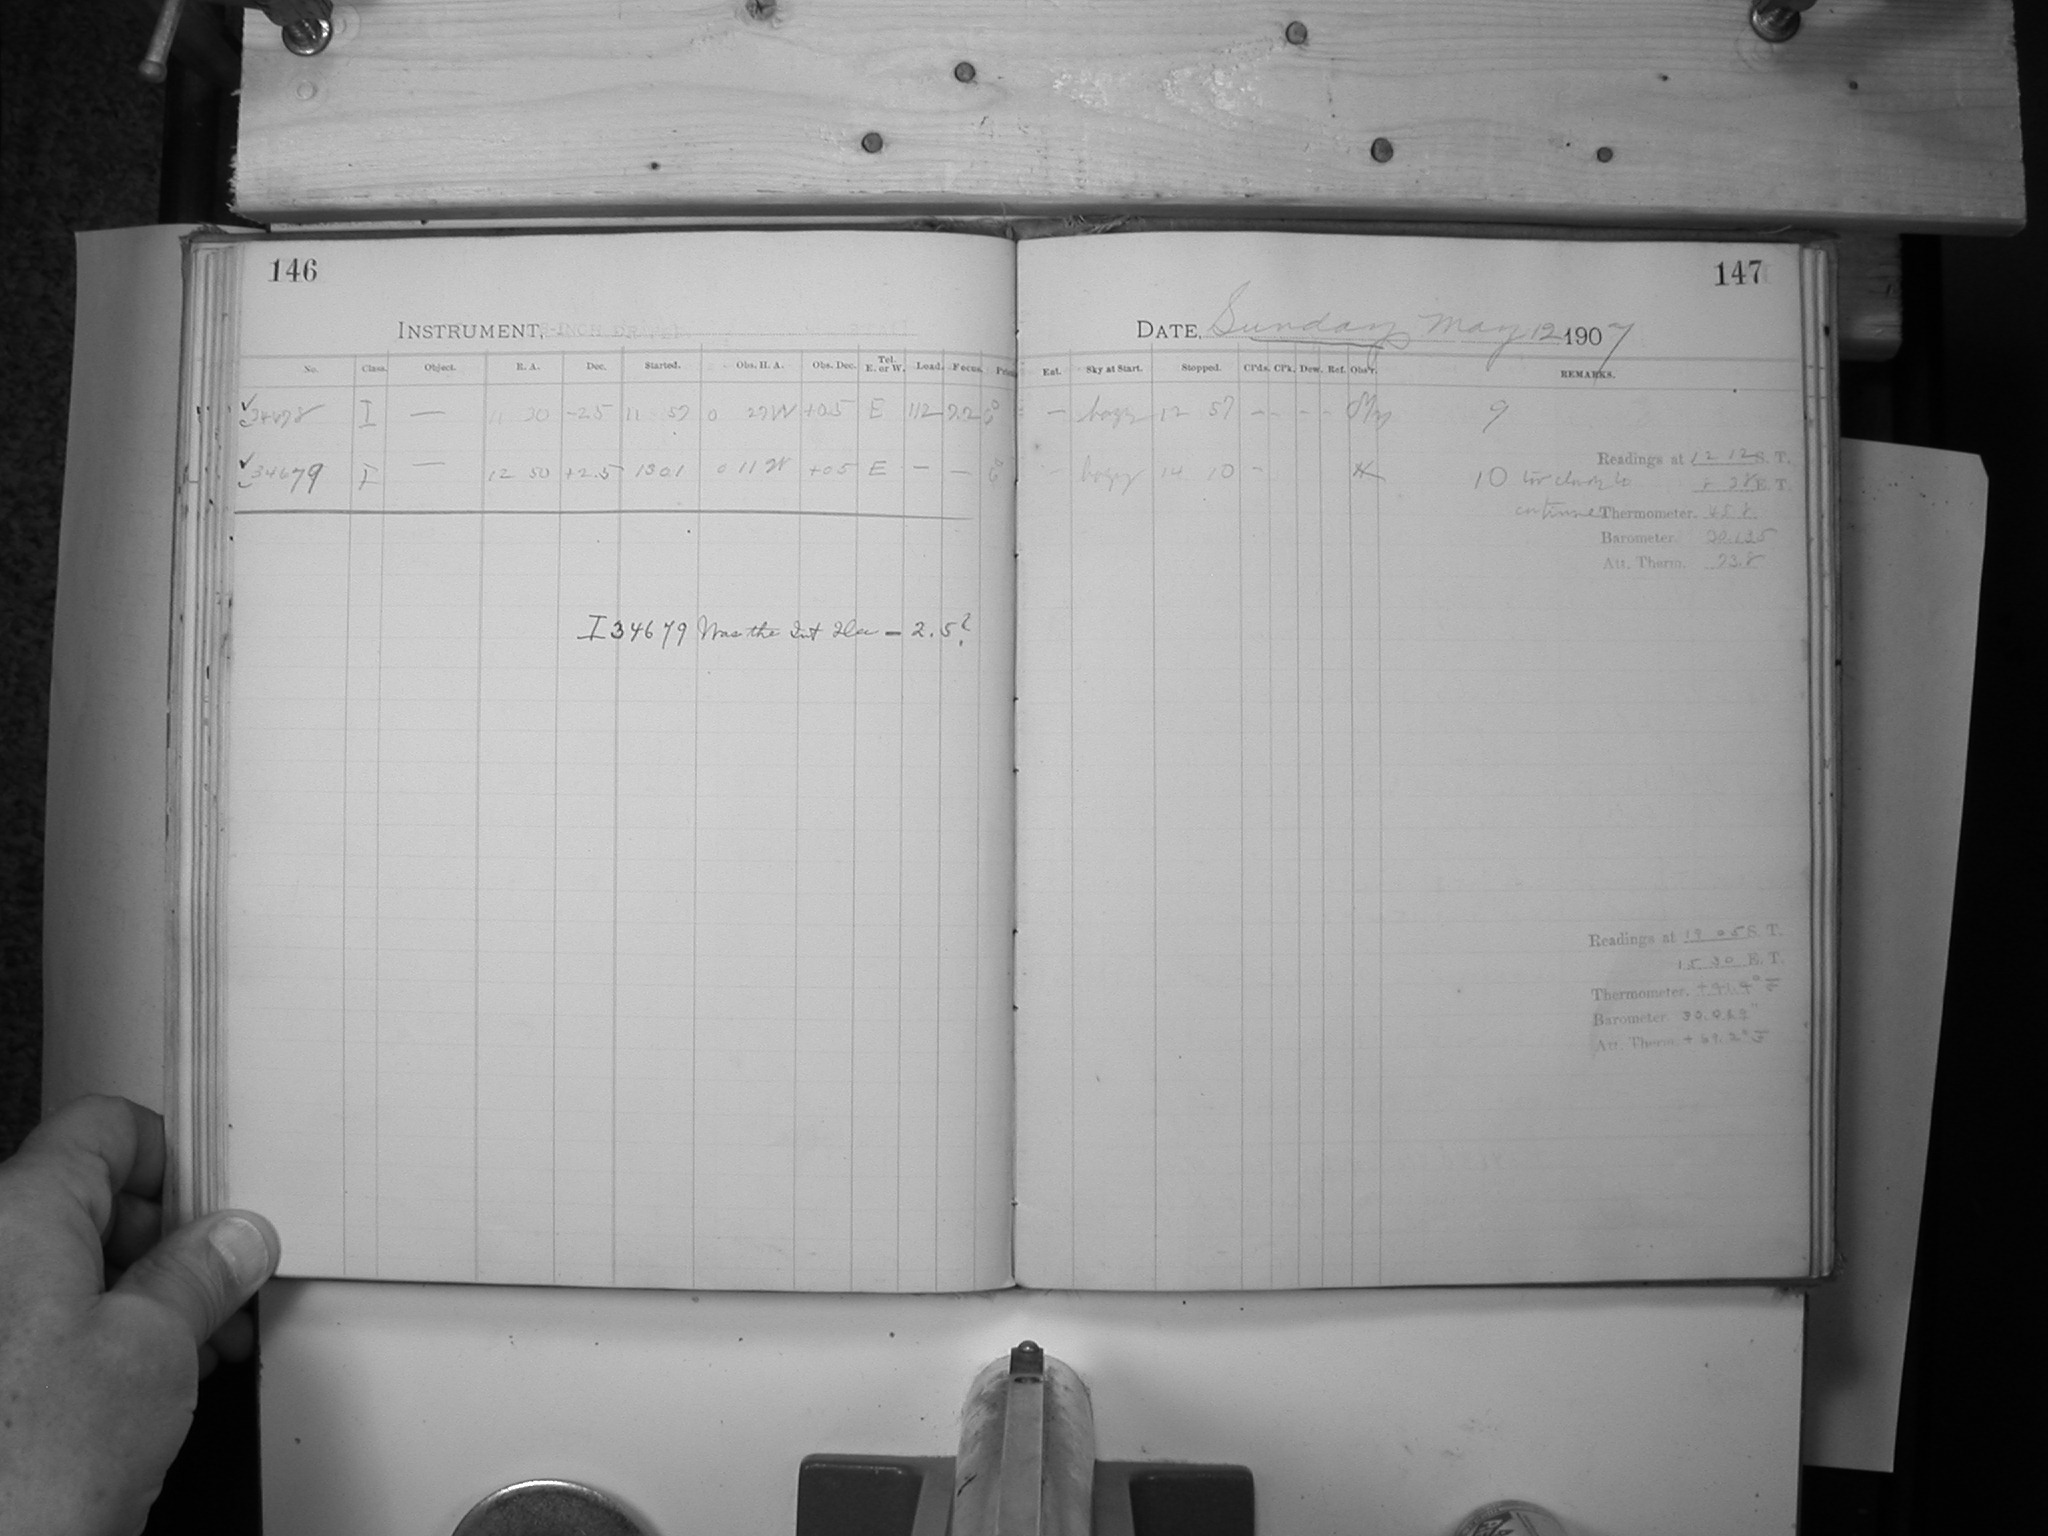 146
INSTRUMENT, 8-INCH DRAPER
No. Class. Object. R. A. Dec. Started. Obs. H. A. Obs. Dec. Tel. E. or W. Load. Focus.
34678 I — 11 30 -2.5 11 57 0 27W +0.5 E 112 22
34679 I — 12 50 +2.5 1301 0 11 W +05 E — —
I 34679 Was the Int Dec — 2.5?
147
DATE, Sunday May 12 1907
Ent. Sky at Start. Stopped. Cl'ds. Cl'k. Dew. Ref. Obs'r. REMARKS.
— hazy 12 57 — — — — 9
— hazy 14 10 — 10 too cloudy to
continue
Readings at 12 12 S. T.
E. T.
Thermometer.
Barometer
Att. Therm. 73.8
Readings at 19 05 S. T.
15 30 E. T.
Thermometer.
Barometer.
Att. Therm.